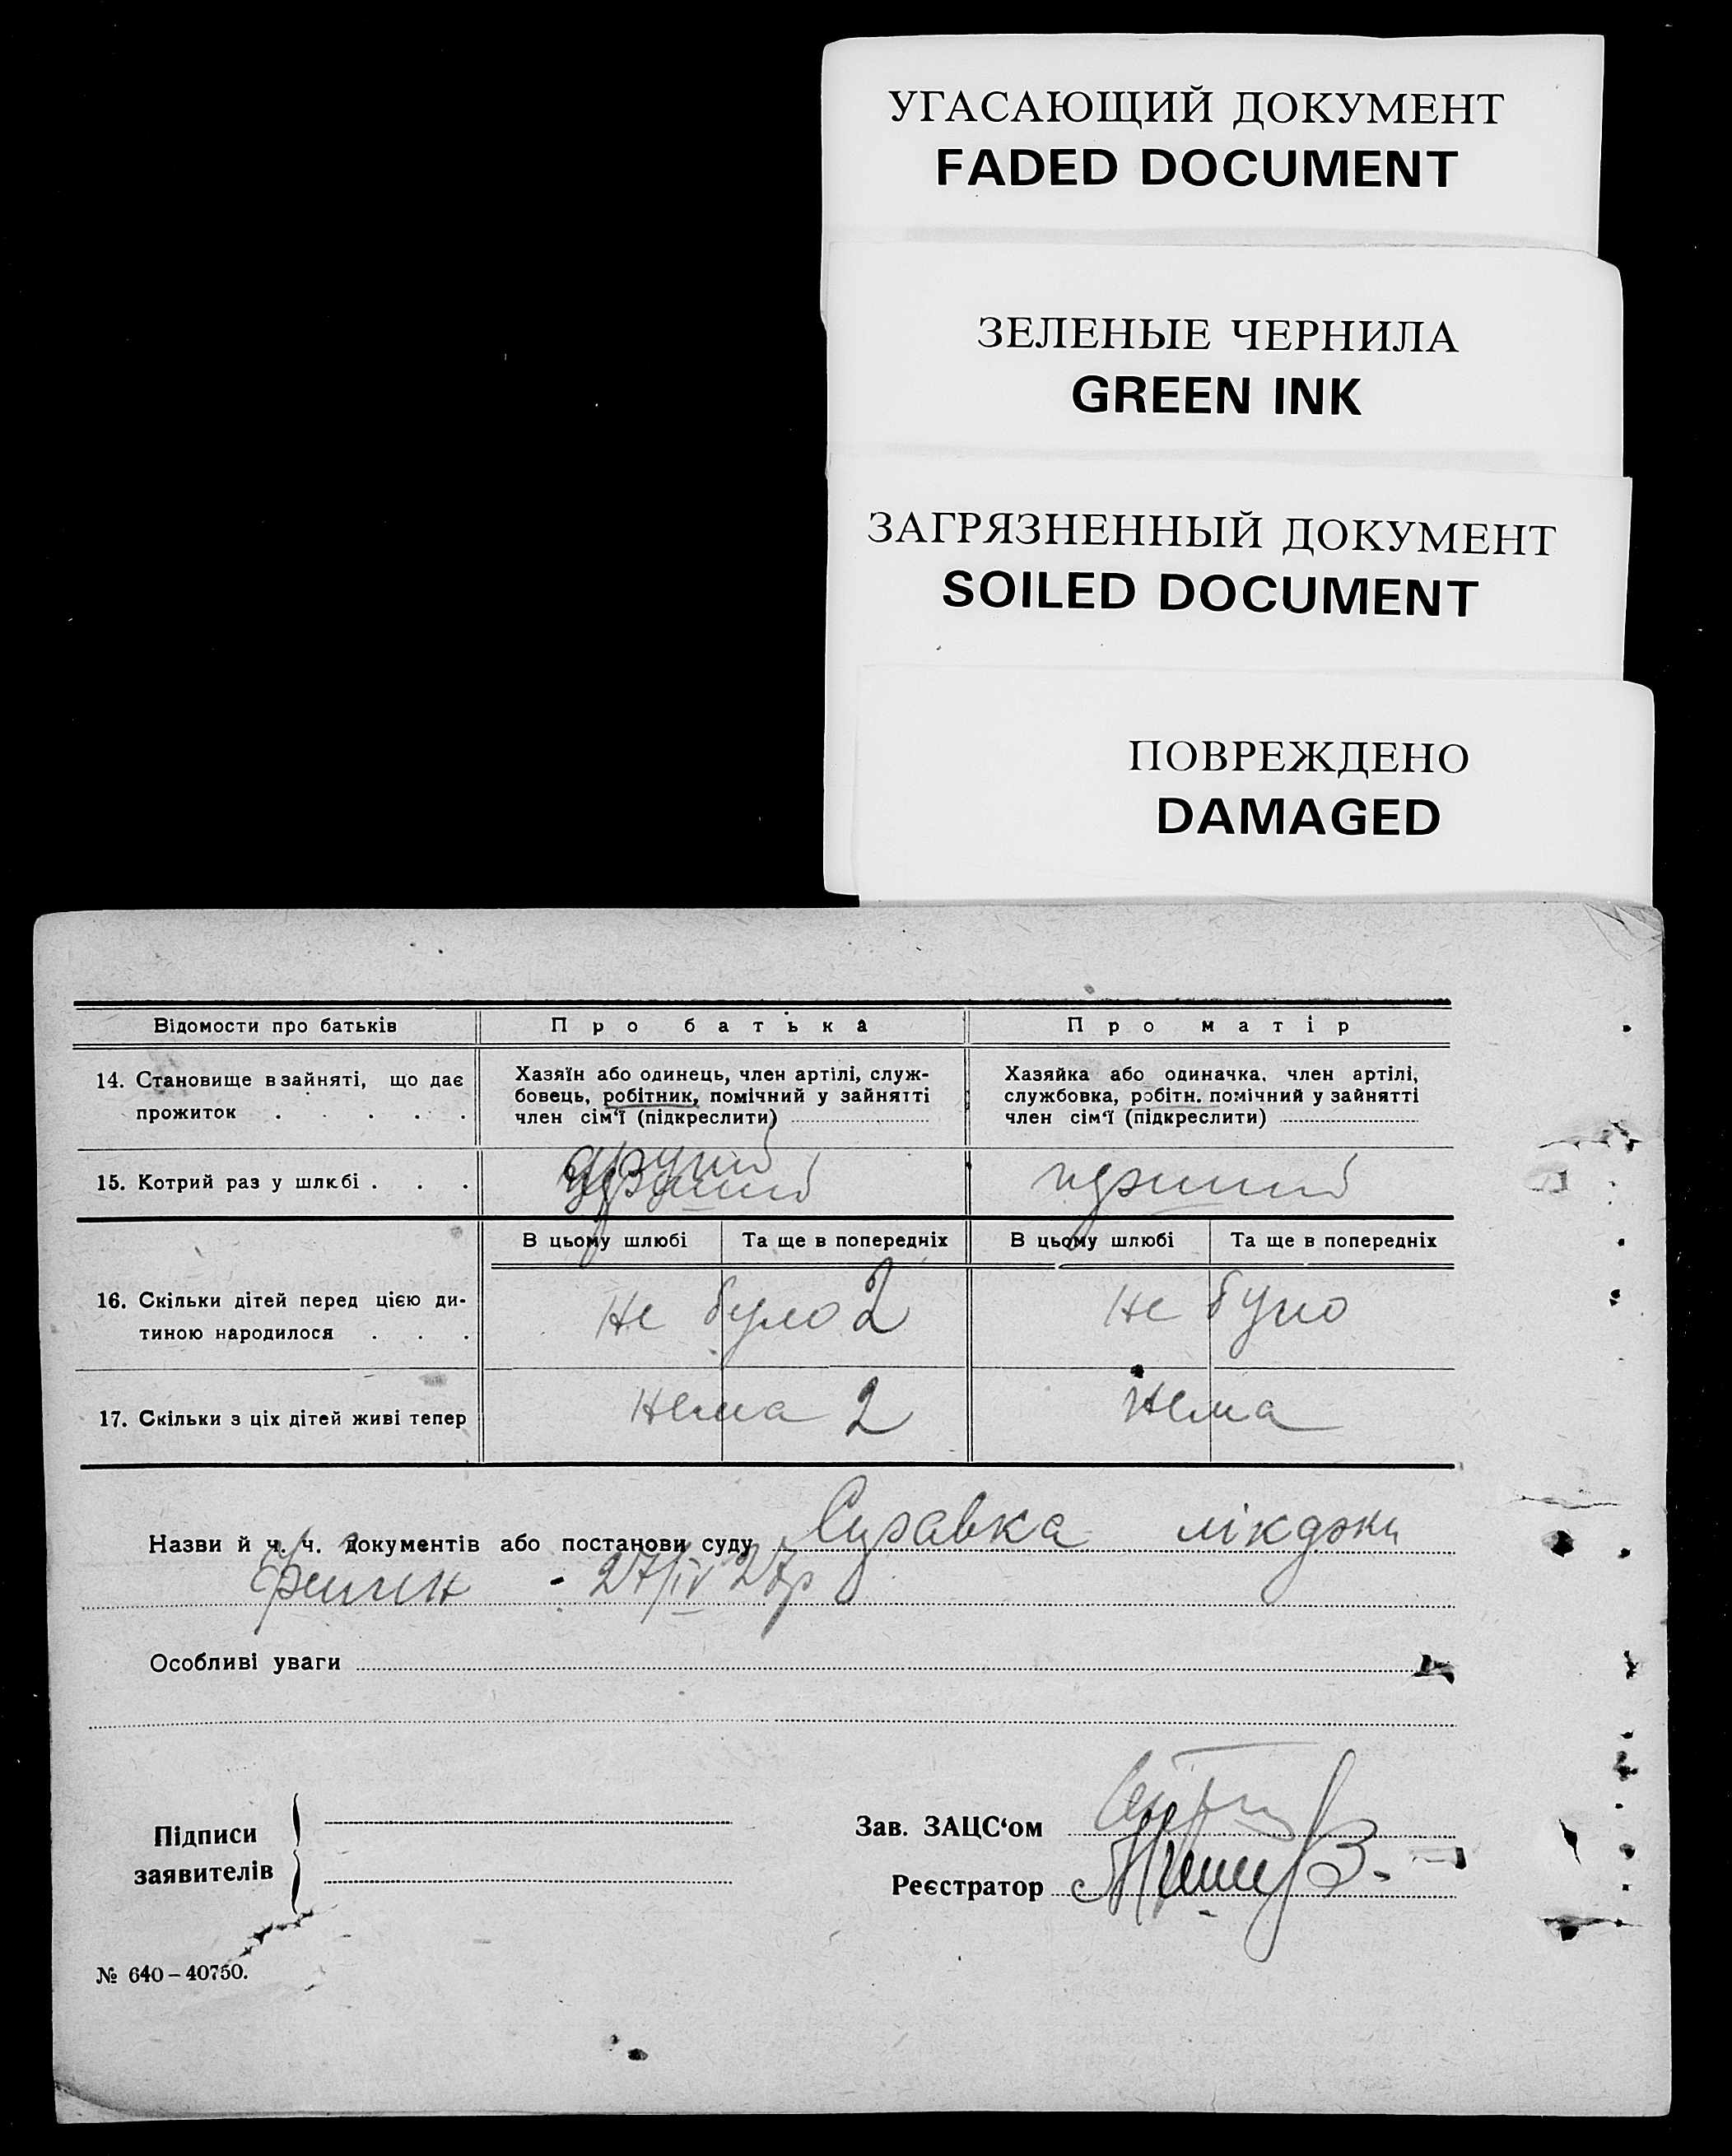 УГАСАЮЩИЙ ДОКУМЕНТ
FADED DOCUMENT
ЗЕЛЕНЫЕ ЧЕРНИЛА
GREEN INK
ЗАГРЯЗНЕННЫЙ ДОКУМЕНТ
SOILED DOCUMENT
ПОВРЕЖДЕНО
DAMAGED
Відомости про батьків Про батька Про матір
14. Становище в зайняті, що дає прожиток . . . . .
Хазяїн або одинець, член артілі, служ-
бовець, робітник, помічний у зайнятті
член сім'ї (підкреслити)
Хазяйка або одиначка, член артілі,
службовка, робітн. помічний у зайнятті
член сім'ї (підкреслити)
15. Котрий раз у шлюбі . . . другий перший
В цьому шлюбі Та ще в попередніх В цьому шлюбі Та ще в попередніх
16. Скільки дітей перед цією ди-
тиною народилося . . .
не було 2 не було
17. Скільки з ціх дітей живі тепер нема 2 нема
Назви й ч. ч. документів або постанови суду
27/IV 27р
Особливі уваги
Підписи
заявителів
Зав. ЗАЦС'ом
Реєстратор
№ 640-40750.